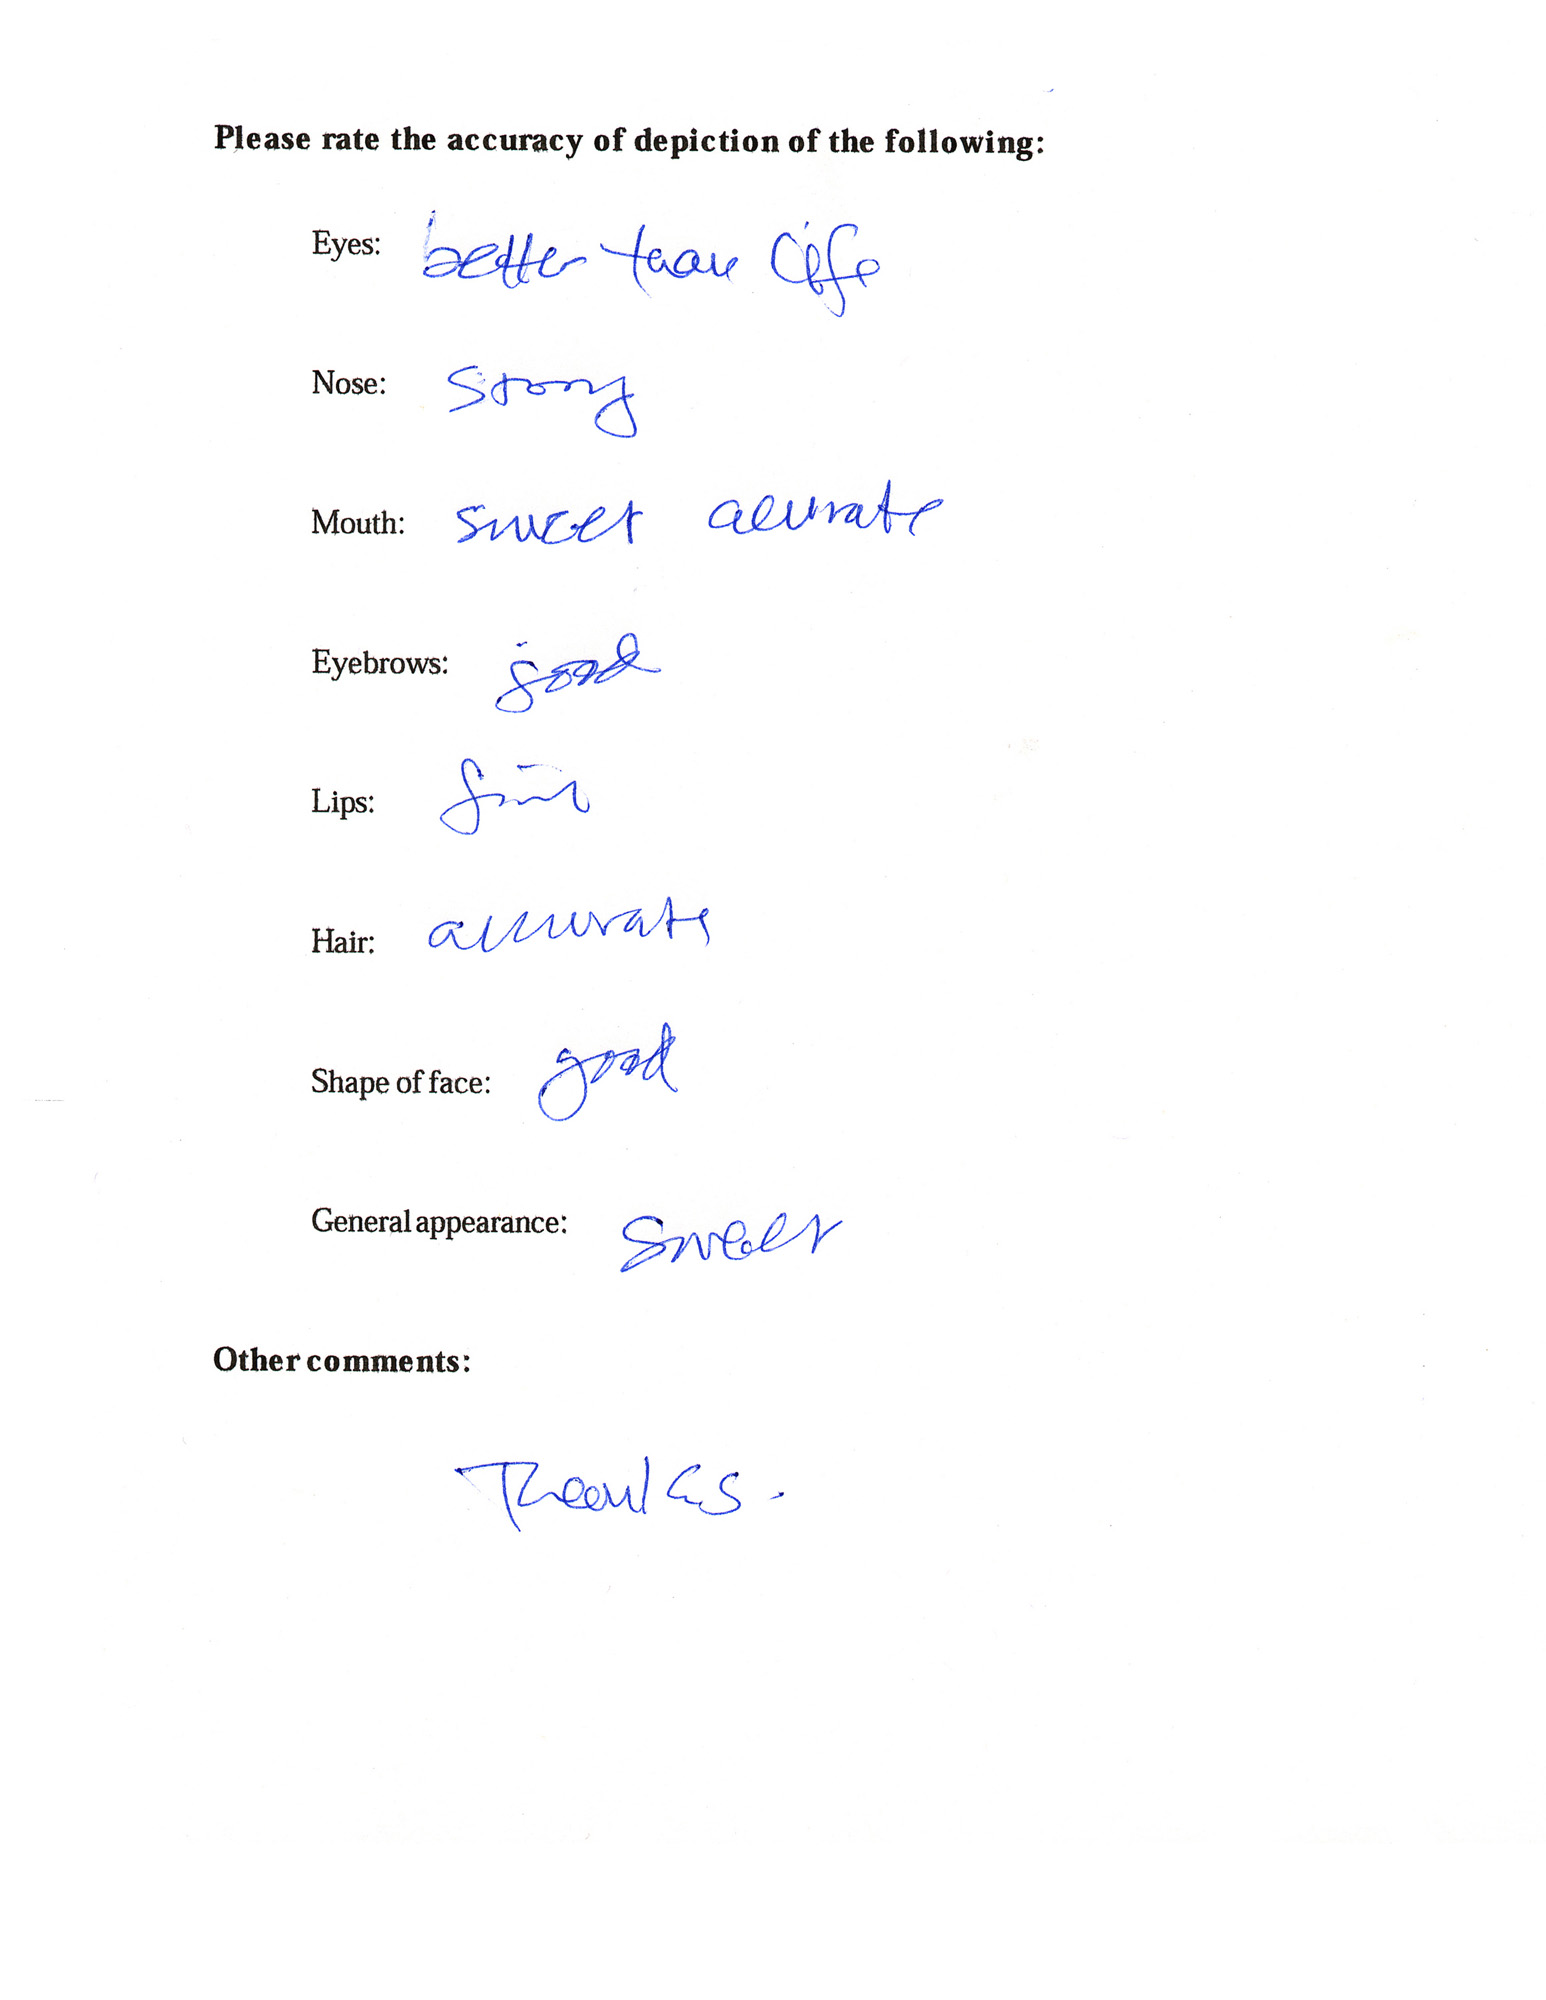 Please rate the accuracy of depiction of the following:
Eyes: better than life
Nose: strong
Mouth: sweet accurate
Eyebrows: good
Lips: fine
Hair: accurate
Shape of face: good
General appearance: sweet
Other comments:
Thanks.